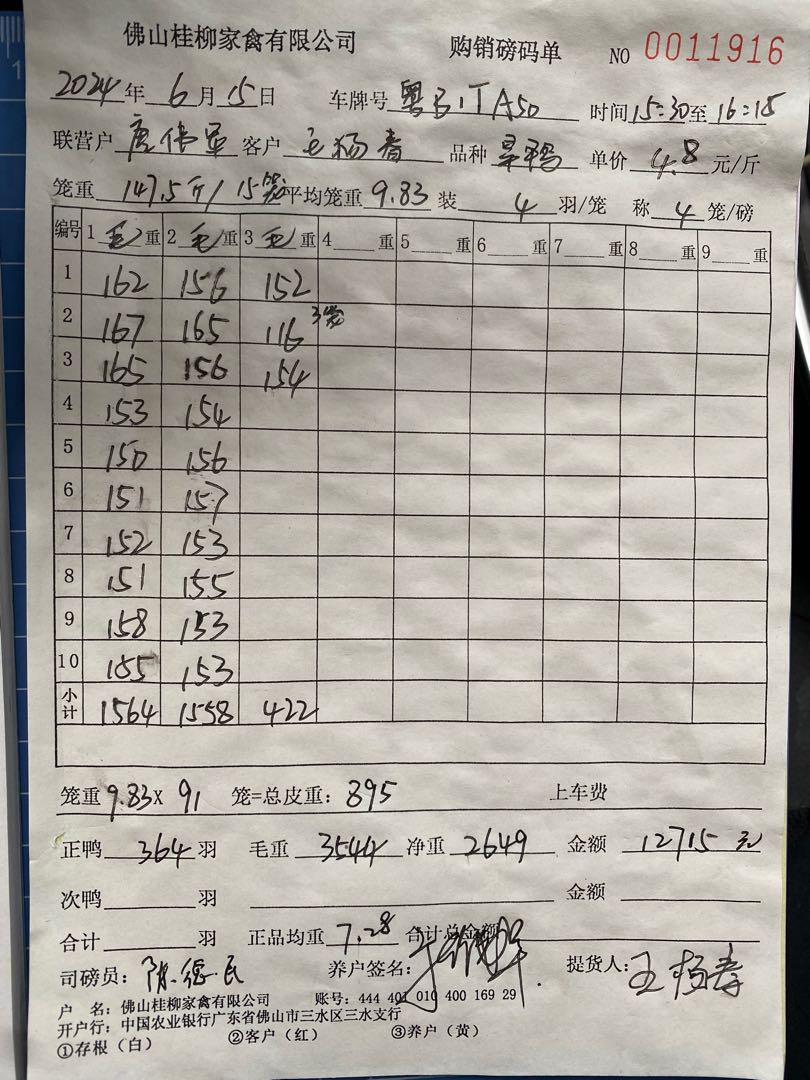 佛山桂柳家禽有限公司 购销磅码单 NO 0011916
2024年 6 月 15 日 车牌号 粤B1TA50 时间 15:30 至 16:15
联营户 唐伟军 客户 王杨春 品种 旱鸭 单价 4.8 元/斤
笼重 147.5斤/15笼 平均笼重 9.83 装 4 羽/笼 称 4 笼/磅
编号 1 毛 重 2 毛 重 3 毛 重 4 重 5 重 6 重 7 重 8 重 9 重
1 162 156 152
2 167 165 116 3笼
3 165 156 154
4 153 154
5 150 156
6 151 157
7 152 153
8 151 155
9 158 153
10 155 153
小计 1564 1558 422
笼重 9.83 x 91 笼=总皮重: 895 上车费
正鸭 364 羽 毛重 3544 净重 2649 金额 12715 元
次鸭 羽 金额
合计 羽 正品均重 7.28 合计总金额
司磅员: 陈德民 养户签名: 提货人: 王杨春
户 名: 佛山桂柳家禽有限公司 账号: 444 401 010 400 169 29
开户行: 中国农业银行广东省佛山市三水区三水支行
①存根(白) ②客户(红) ③养户(黄)